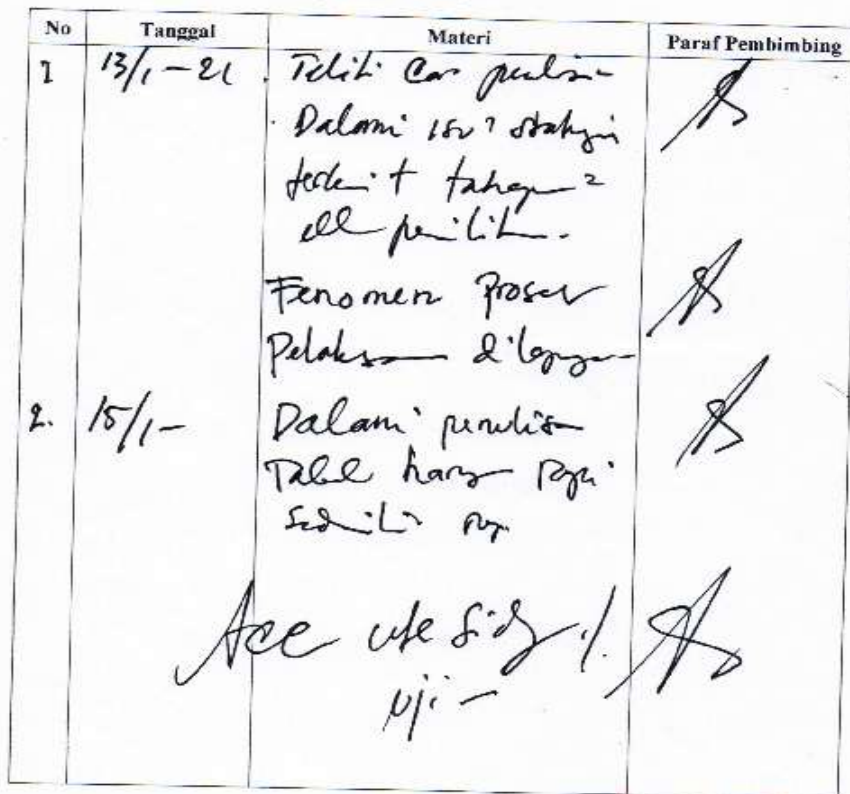 No Tanggal Materi Paraf Pembimbing
1 13/1-21 Teliti Cara penulisan
Dalami isu²
terkait tahapan²
penelitian.
Fenomena Proses
Pelaksanaan dilapangan
2. 15/1- Dalami penulisan
Tabel harus rapi
Acc utk Sidang
uji -